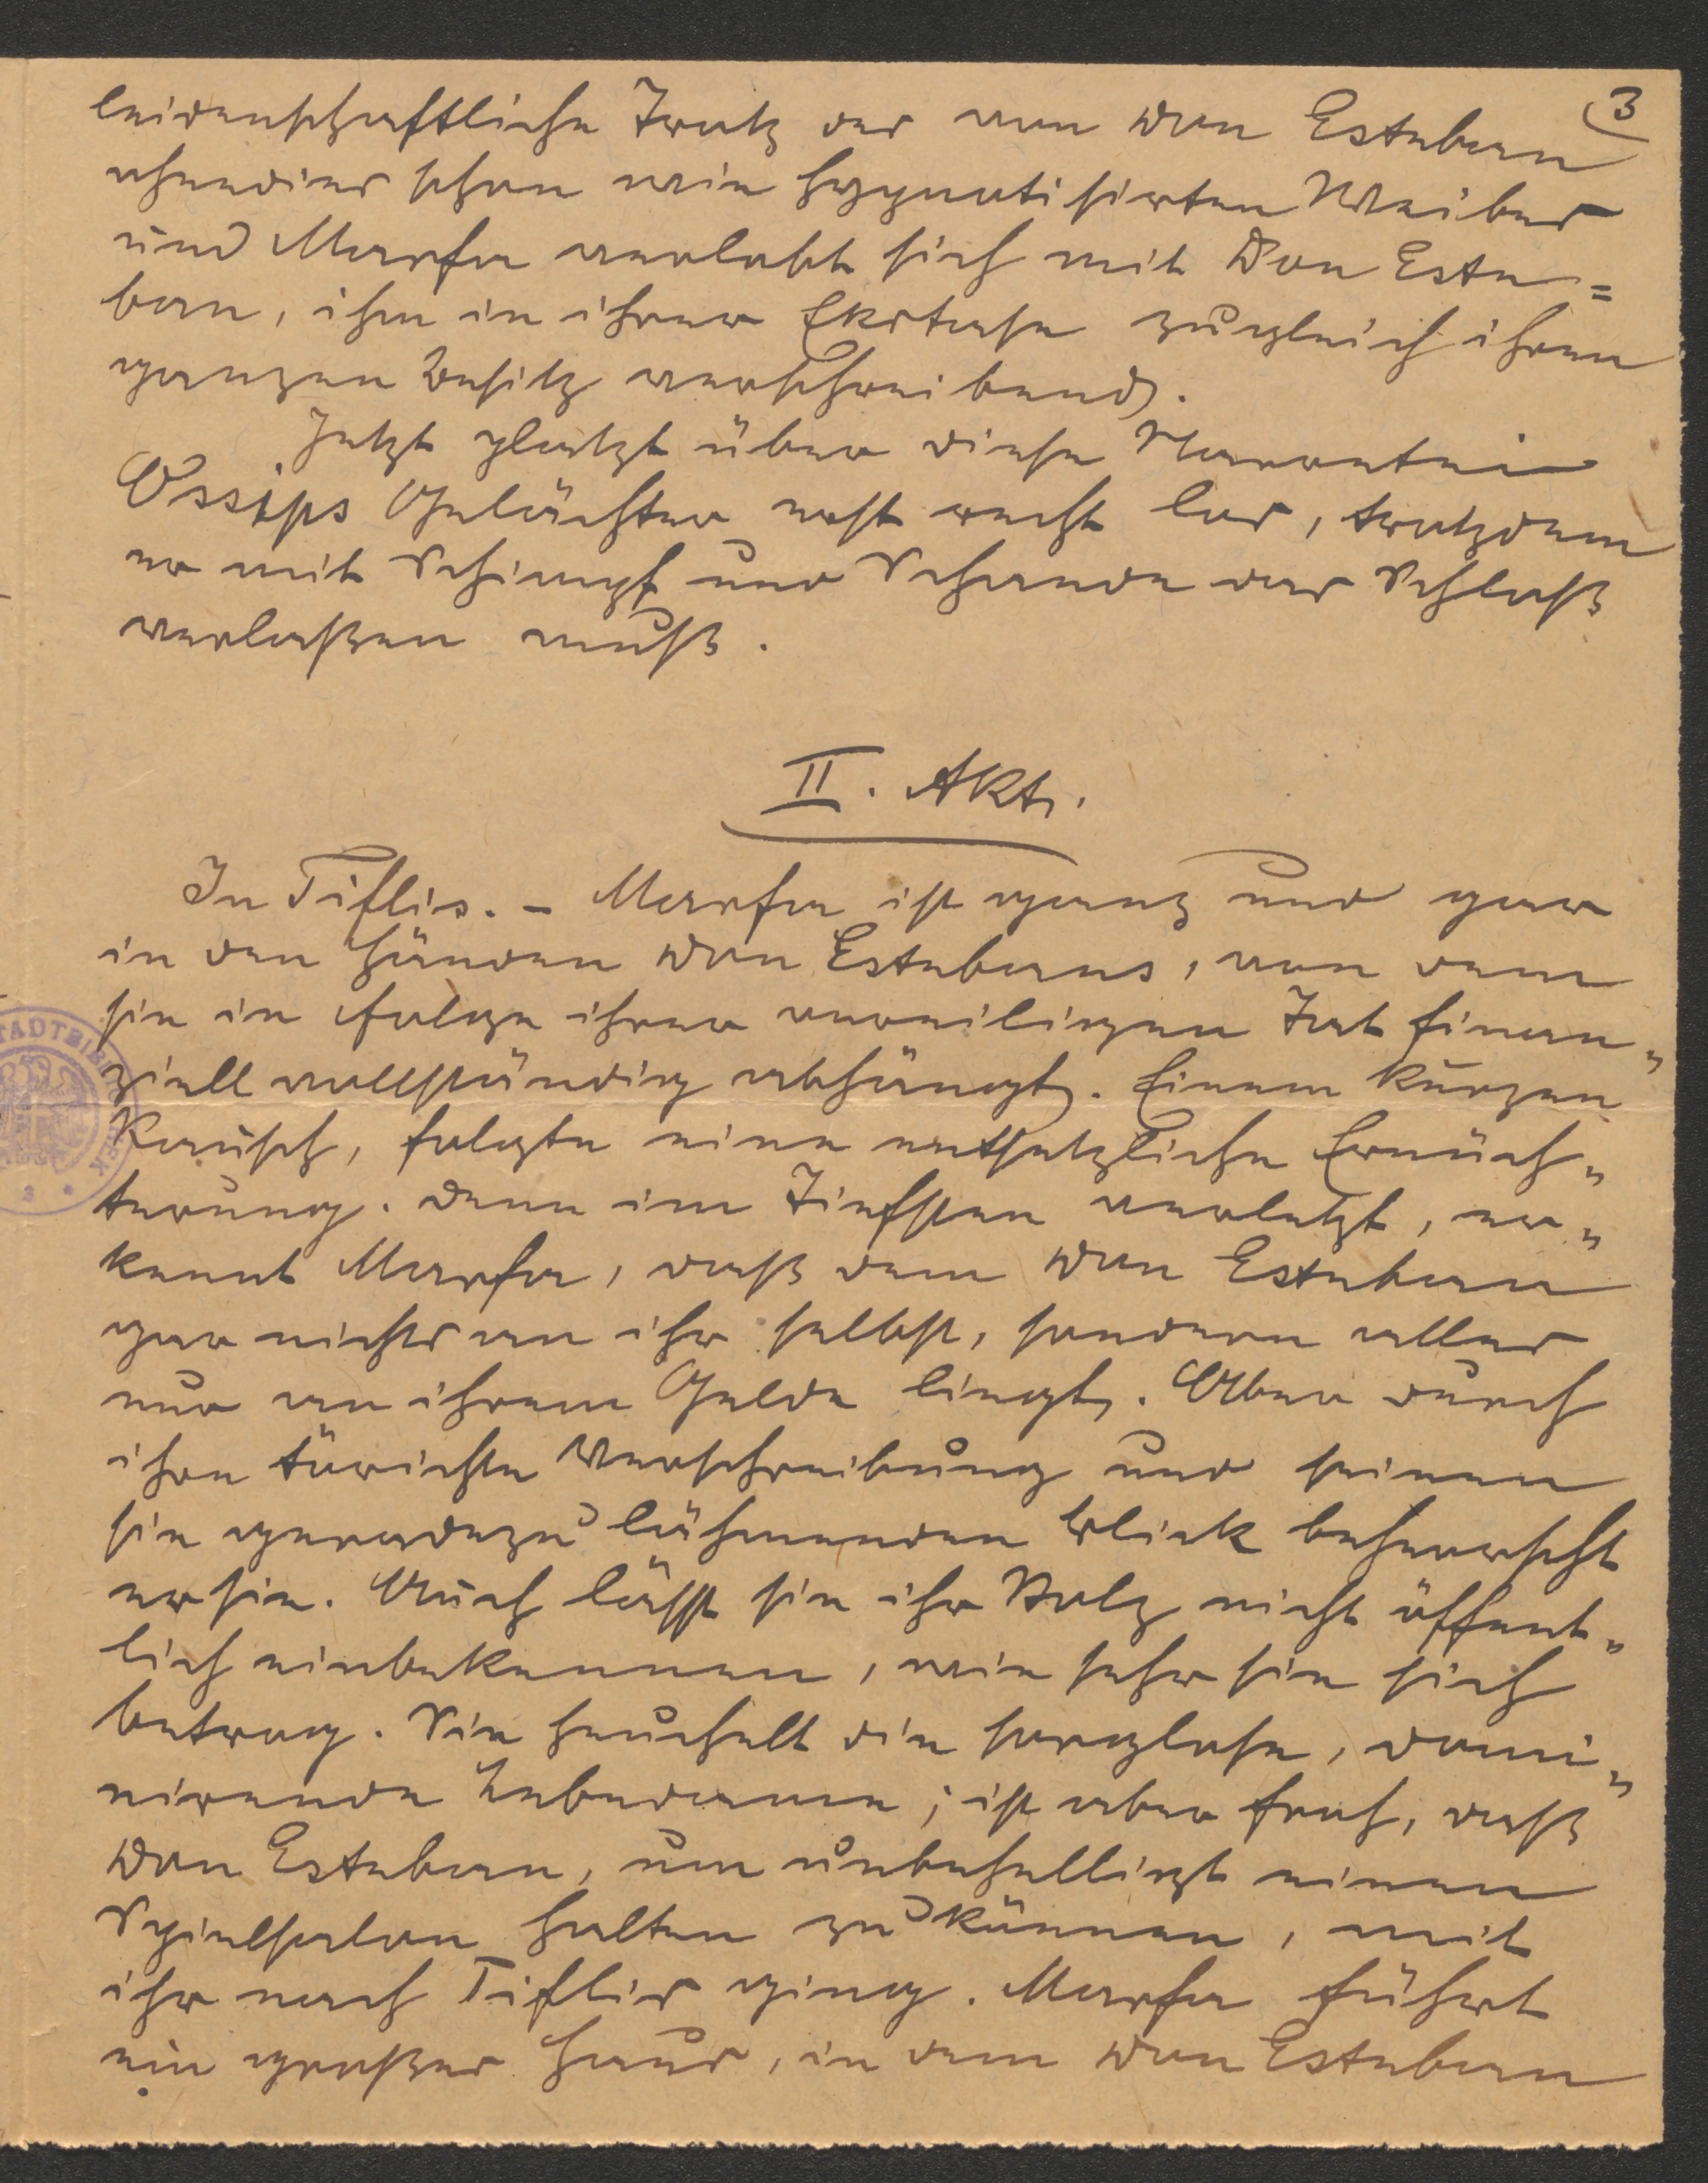 3
leidenschaftliche Trotz des von Don Esteban
ohnedies schon wie hypnotisirten Weibes
und Marfa verlobt sich mit Don Este=
ban, ihm in ihrer Ekstase zugleich ihren
ganzen Besitz verschreibend.
Jetzt platzt über diese Narretei
Ossips Gelächter erst recht los, trotzdem
er mit Schimpf und Schande das Schloß
verlaßen muß.
II. Akt.
In Tiflis. – Marfa ist ganz und gar
in den Händen Don Estebans, von dem
sie in Folge ihrer voreiligen Tat finan„
ziell vollständig abhängt. Einem kurzen
Rausch, folgte eine entsetzliche Ernüch„
terung. Denn im Tiefsten verletzt, er„
kennt Marfa, daß dem Don Esteban
gar nichts an ihr selbst, sondern alles
nur an ihrem Gelde liegt. Aber durch
ihre törichte Verschreibung und seinen
sie geradezu lähmenden Blick beherrscht
er sie. Auch lässt sie ihr Stolz nicht öffent„
lich einbekennen, wie sehr sie sich
betrog. Sie heuchelt die sorglose, domi„
nirende Lebedame; ist aber froh, daß
Don Esteban, um unbehelligt einen
Spielsalon halten zu können, mit
ihr nach Tiflis ging. Marfa führt
ein großes Haus, in dem Don Esteban